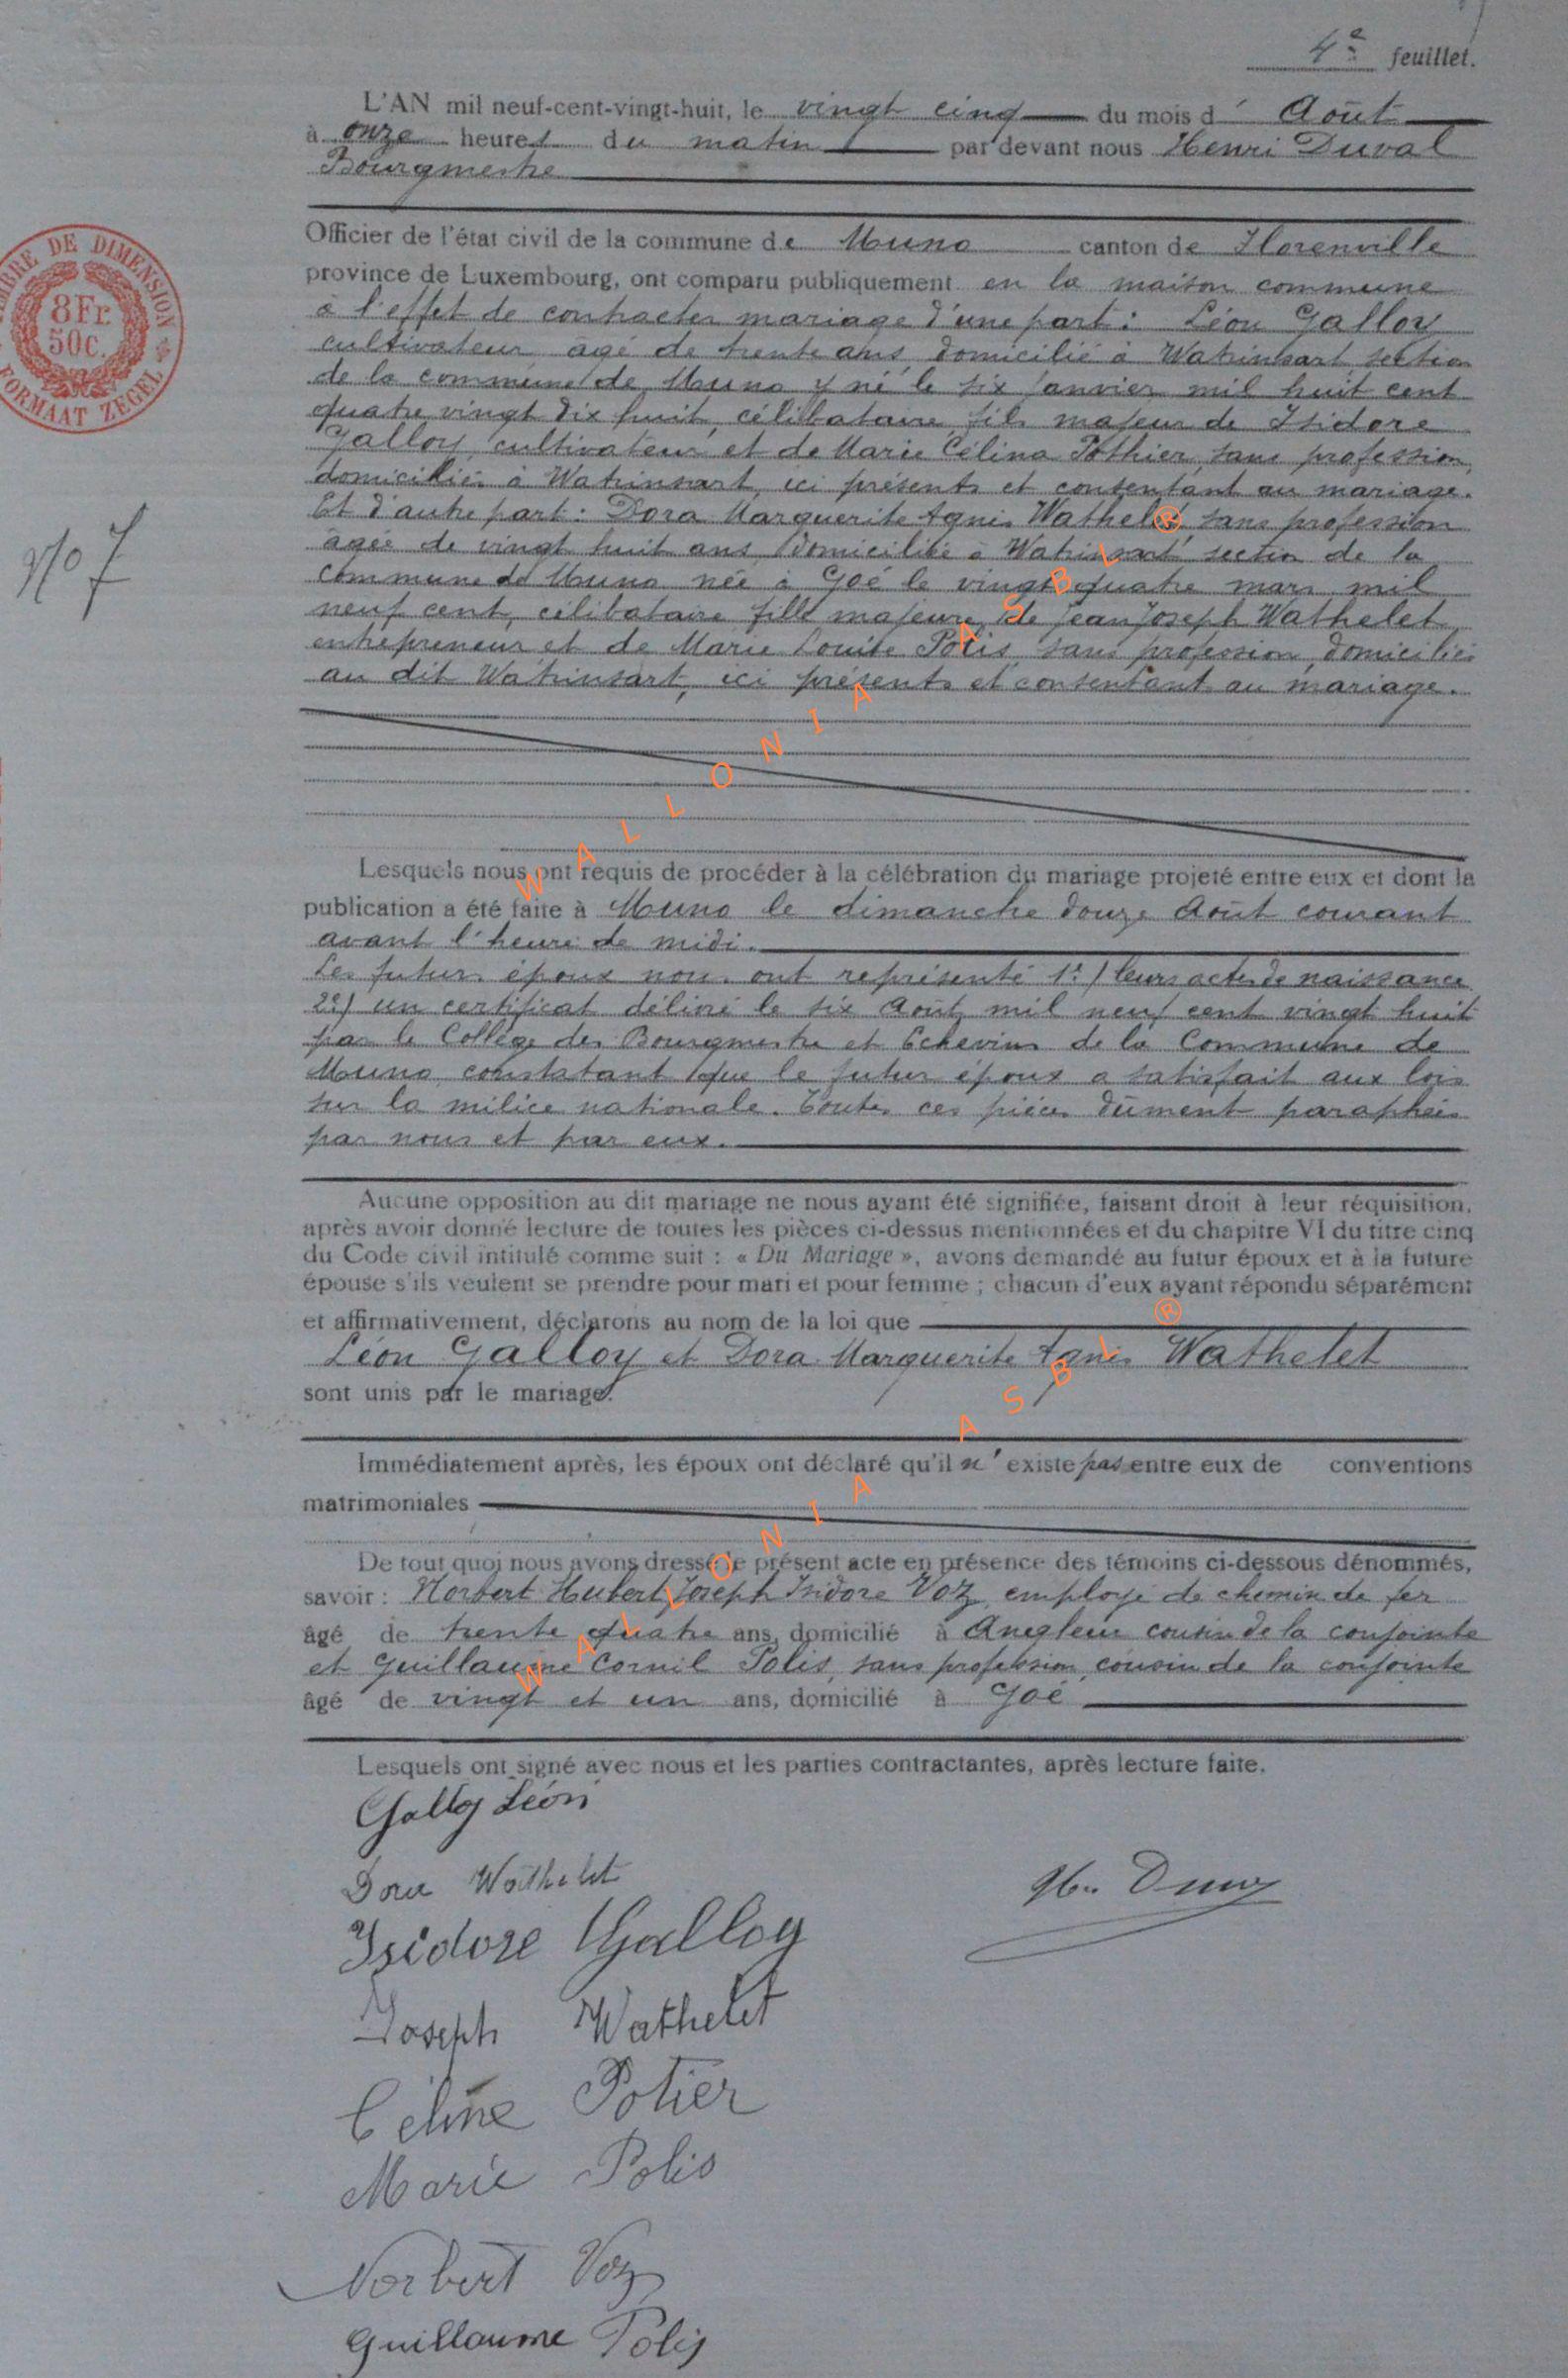 4e feuillet.
L'AN mil neuf-cent-vingt-huit, le vingt cinq du mois d' Août
à onze heures du matin par devant nous Henri Duval
Bourgmestre
TIMBRE DE DIMENSION
8Fr
50c.
FORMAAT ZEGEL
Officier de l'état civil de la commune de Muno canton de Florenville
province de Luxembourg, ont comparu publiquement en la maison commune
à l'effet de contracter mariage d'une part : Léon Galloy
cultivateur âgé de trente ans domicilié à Watrinsart section
de la commune de Muno y né le six janvier mil huit cent
quatre vingt dix huit, célibataire, fils majeur de Isidore
Galloy, cultivateur et de Marie Célina Pothier, sans profession,
domiciliés à Watrinsart, ici présents et consentant au mariage.
Et d'autre part : Dora Marguerite Agnès Wathelet, sans profession
N° 7
agée de vingt huit ans, domiciliée à Watrinsart, section de la
commune de Muno née à Goé le vingt quatre mars mil
neuf cent, célibataire fille majeure de Jean Joseph Wathelet,
entrepreneur et de Marie Louise Polis, sans profession, domiciliés
au dit Watrinsart, ici présents et consentant au mariage.
Lesquels nous ont requis de procéder à la célébration du mariage projeté entre eux et dont la
publication a été faite à Muno le dimanche douze Août courant
avant l'heure de midi.
Les futurs époux nous ont représenté 1°) leurs actes de naissance
2°) un certificat délivré le six Août mil neuf cent vingt huit
par le Collège des Bourgmestre et Echevins de la Commune de
Muno, constatant que le futur époux a satisfait aux lois
sur la milice nationale. Toutes ces pièces dûment paraphées
par nous et par eux.
Aucune opposition au dit mariage ne nous ayant été signifiée, faisant droit à leur réquisition,
après avoir donné lecture de toutes les pièces ci-dessus mentionnées et du chapitre VI du titre cinq
du Code civil intitulé comme suit : « Du Mariage », avons demandé au futur époux et à la future
épouse s'ils veulent se prendre pour mari et pour femme ; chacun d'eux ayant répondu séparément
et affirmativement, déclarons au nom de la loi que
Léon Galloy et Dora Marguerite Agnès Wathelet
sont unis par le mariage.
Immédiatement après, les époux ont déclaré qu'il n' existe pas entre eux de conventions
matrimoniales
De tout quoi nous avons dressé le présent acte en présence des témoins ci-dessous dénommés,
savoir : Norbert Hubert Joseph Isidore Voz, employé de chemin de fer
âgé de trente quatre ans, domicilié à Angleur cousin de la conjointe
et Guillaume Cornil Polis, sans profession, cousin de la conjointe
âgé de vingt et un ans, domicilié à Goé
Lesquels ont signé avec nous et les parties contractantes, après lecture faite.
Galloy Léon
Dora Wathelet
Hri Duval
Isidore Galloy
Joseph Wathelet
Céline Potier
Marie Polis
Norbert Voz
Guillaume Polis
WALLONIA ASBL ®
WALLONIA ASBL ®